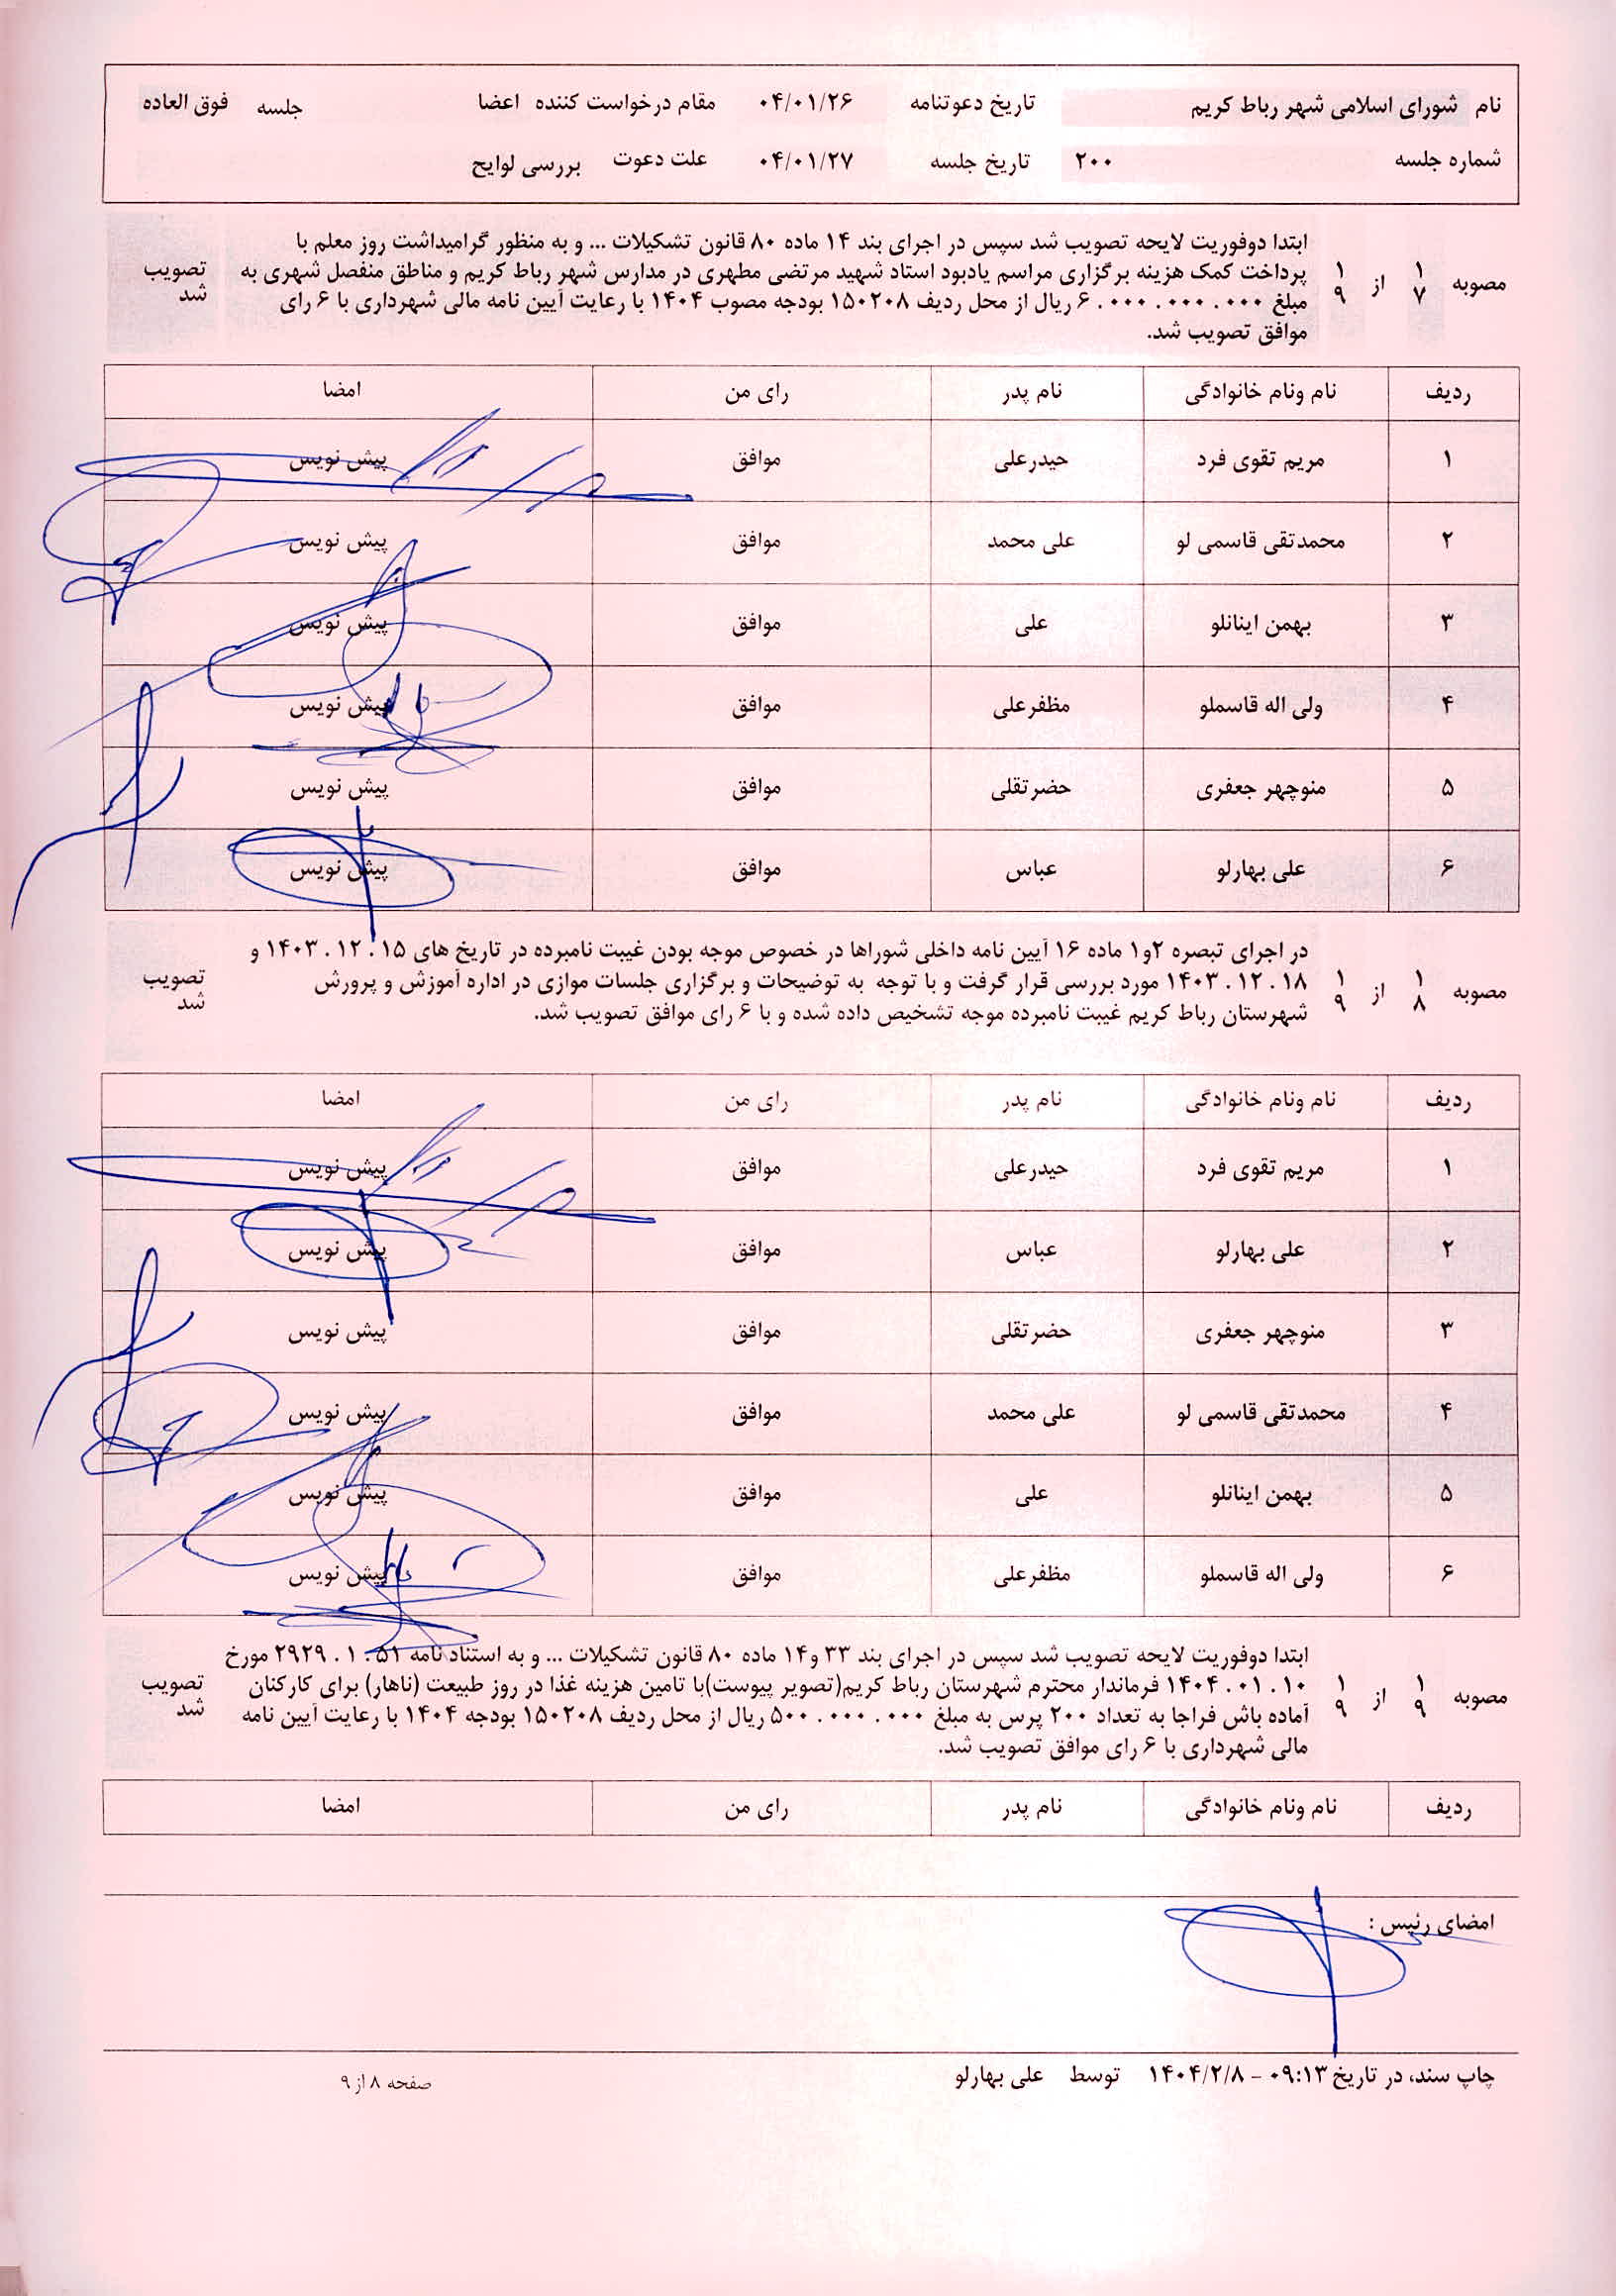 نام شورای اسلامی شهر رباط کریم تاریخ دعوتنامه ۰۴/۰۱/۲۶ مقام درخواست کننده اعضا جلسه فوق العاده
شماره جلسه ۲۰۰ تاریخ جلسه ۰۴/۰۱/۲۷ علت دعوت بررسی لوایح
مصوبه ۱۷ از ۱۹
ابتدا دوفوریت لایحه تصویب شد سپس در اجرای بند ۱۴ ماده ۸۰ قانون تشکیلات ... و به منظور گرامیداشت روز معلم با
پرداخت کمک هزینه برگزاری مراسم یادبود استاد شهید مرتضی مطهری در مدارس شهر رباط کریم و مناطق منفصل شهری به
مبلغ ۶.۰۰۰.۰۰۰.۰۰۰ ریال از محل ردیف ۱۵۰۲۰۸ بودجه مصوب ۱۴۰۴ با رعایت آیین نامه مالی شهرداری با ۶ رای
موافق تصویب شد.
تصویب شد
ردیف نام ونام خانوادگی نام پدر رای من امضا
۱ مریم تقوی فرد حیدرعلی موافق پیش نویس
۲ محمدتقی قاسمی لو علی محمد موافق پیش نویس
۳ بهمن اینانلو علی موافق پیش نویس
۴ ولی اله قاسملو مظفرعلی موافق پیش نویس
۵ منوچهر جعفری حضرتقلی موافق پیش نویس
۶ علی بهارلو عباس موافق پیش نویس
مصوبه ۱۸ از ۱۹
در اجرای تبصره ۲و۱ ماده ۱۶ آیین نامه داخلی شوراها در خصوص موجه بودن غیبت نامبرده در تاریخ های ۱۴۰۳.۱۲.۱۵ و
۱۴۰۳.۱۲.۱۸ مورد بررسی قرار گرفت و با توجه به توضیحات و برگزاری جلسات موازی در اداره آموزش و پرورش
شهرستان رباط کریم غیبت نامبرده موجه تشخیص داده شده و با ۶ رای موافق تصویب شد.
تصویب شد
ردیف نام ونام خانوادگی نام پدر رای من امضا
۱ مریم تقوی فرد حیدرعلی موافق پیش نویس
۲ علی بهارلو عباس موافق پیش نویس
۳ منوچهر جعفری حضرتقلی موافق پیش نویس
۴ محمدتقی قاسمی لو علی محمد موافق پیش نویس
۵ بهمن اینانلو علی موافق پیش نویس
۶ ولی اله قاسملو مظفرعلی موافق پیش نویس
مصوبه ۱۹ از ۱۹
ابتدا دوفوریت لایحه تصویب شد سپس در اجرای بند ۳۳ و۱۴ ماده ۸۰ قانون تشکیلات ... و به استناد نامه ۵۱.۱.۲۹۲۹ مورخ
۱۴۰۴.۰۱.۱۰ فرماندار محترم شهرستان رباط کریم(تصویر پیوست)با تامین هزینه غذا در روز طبیعت (ناهار) برای کارکنان
آماده باش فراجا به تعداد ۲۰۰ پرس به مبلغ ۵۰۰.۰۰۰.۰۰۰ ریال از محل ردیف ۱۵۰۲۰۸ بودجه ۱۴۰۴ با رعایت آیین نامه
مالی شهرداری با ۶ رای موافق تصویب شد.
تصویب شد
ردیف نام ونام خانوادگی نام پدر رای من امضا
امضای رئیس :
چاپ سند، در تاریخ ۰۹:۱۳ - ۱۴۰۴/۲/۸ توسط علی بهارلو صفحه ۸ از ۹